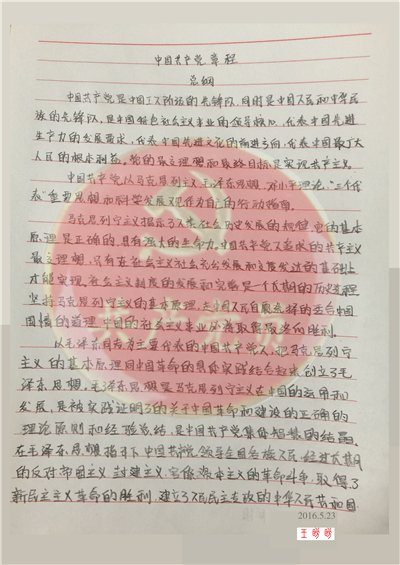 中国共产党章程
总纲
中国共产党是中国工人阶级的先锋队，同时是中国人民和中华民
族的先锋队，是中国特色社会主义事业的领导核心，代表中国先进
生产力的发展要求，代表中国先进文化的前进方向，代表中国最广大
人民的根本利益。党的最高理想和最终目标是实现共产主义。
中国共产党以马克思列宁主义、毛泽东思想、邓小平理论、“三个代
表”重要思想和科学发展观作为自己的行动指南。
马克思列宁主义揭示了人类社会历史发展的规律，它的基本
原理是正确的，具有强大的生命力。中国共产党人追求的共产主义
最高理想，只有在社会主义社会充分发展和高度发达的基础上
才能实现。社会主义制度的发展和完善是一个长期的历史过程。
坚持马克思列宁主义的基本原理，走中国人民自愿选择的适合中国
国情的道路，中国的社会主义事业必将取得最终的胜利。
以毛泽东同志为主要代表的中国共产党人，把马克思列宁
主义的基本原理同中国革命的具体实践结合起来，创立了毛
泽东思想。毛泽东思想是马克思列宁主义在中国的运用和
发展，是被实践证明了的关于中国革命和建设的正确的
理论原则和经验总结，是中国共产党集体智慧的结晶。
在毛泽东思想指引下，中国共产党领导全国各族人民，经过长期
的反对帝国主义、封建主义、官僚资本主义的革命斗争，取得了
新民主主义革命的胜利，建立了人民民主专政的中华人民共和国
2016.5.23